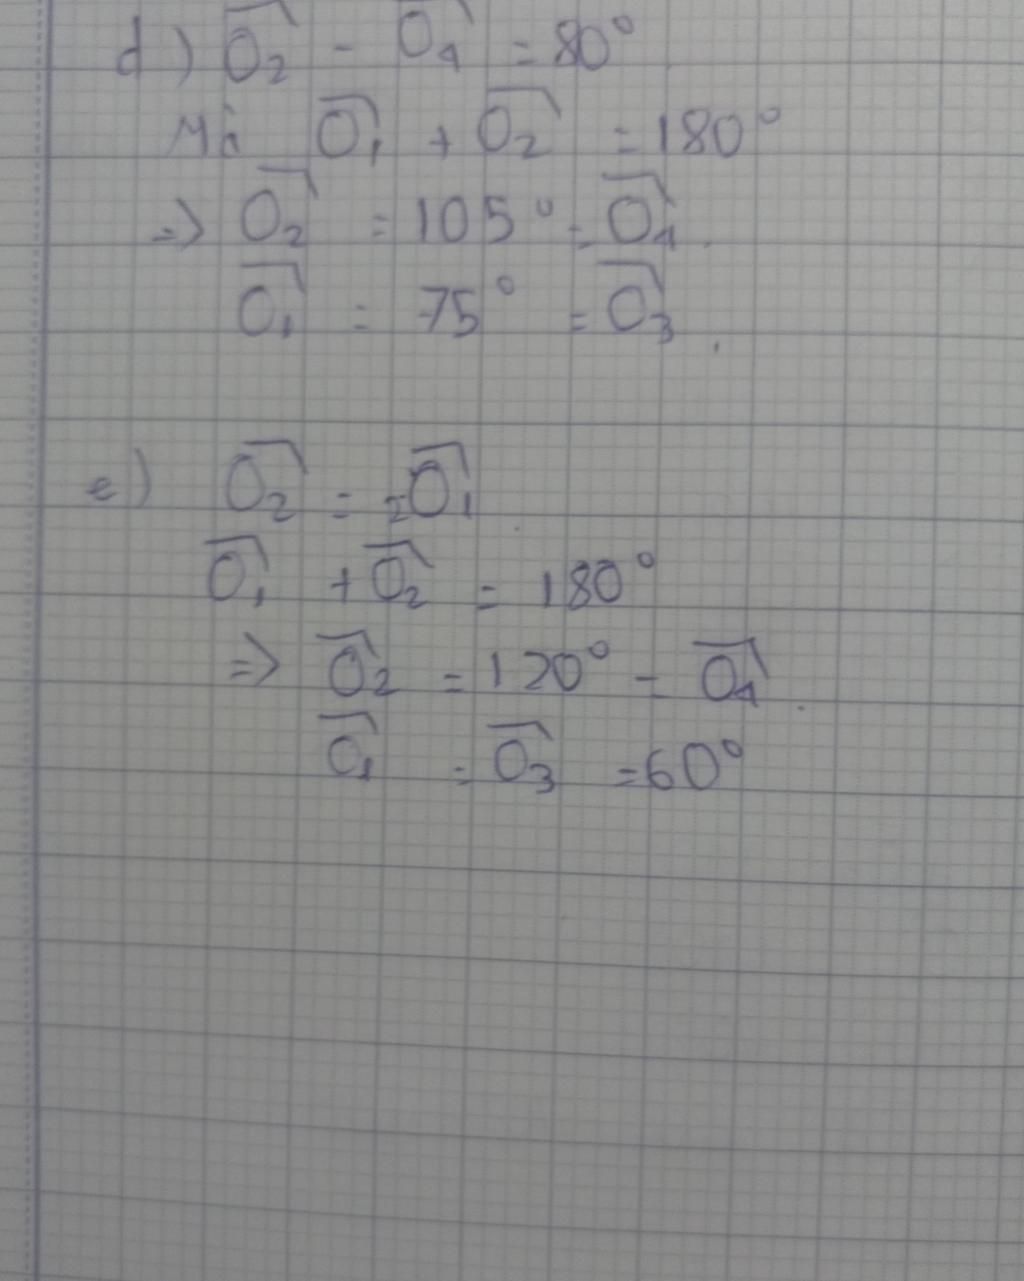 d) O₂ - O₁ = 80°
Mà O₁ + O₂ = 180°
=> O₂ = 105° = O₄.
O₁ = 75° = O₃.
e) O₂ = 2O₁.
O₁ + O₂ = 180°
=> O₂ = 120° = O₄.
O₁ = O₃ = 60°